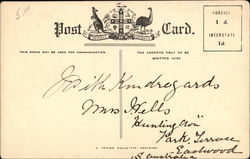 5/-
Post Card.
FOREIGN
1 d.
INTERSTATE
1d
THIS SPACE MAY BE USED FOR COMMUNICATION
THE ADDRESS ONLY TO BE
WRITTEN HERE
With Kind regards
Mrs Wells
Huntingdon
Park Terrace
Eastwood
S Australia